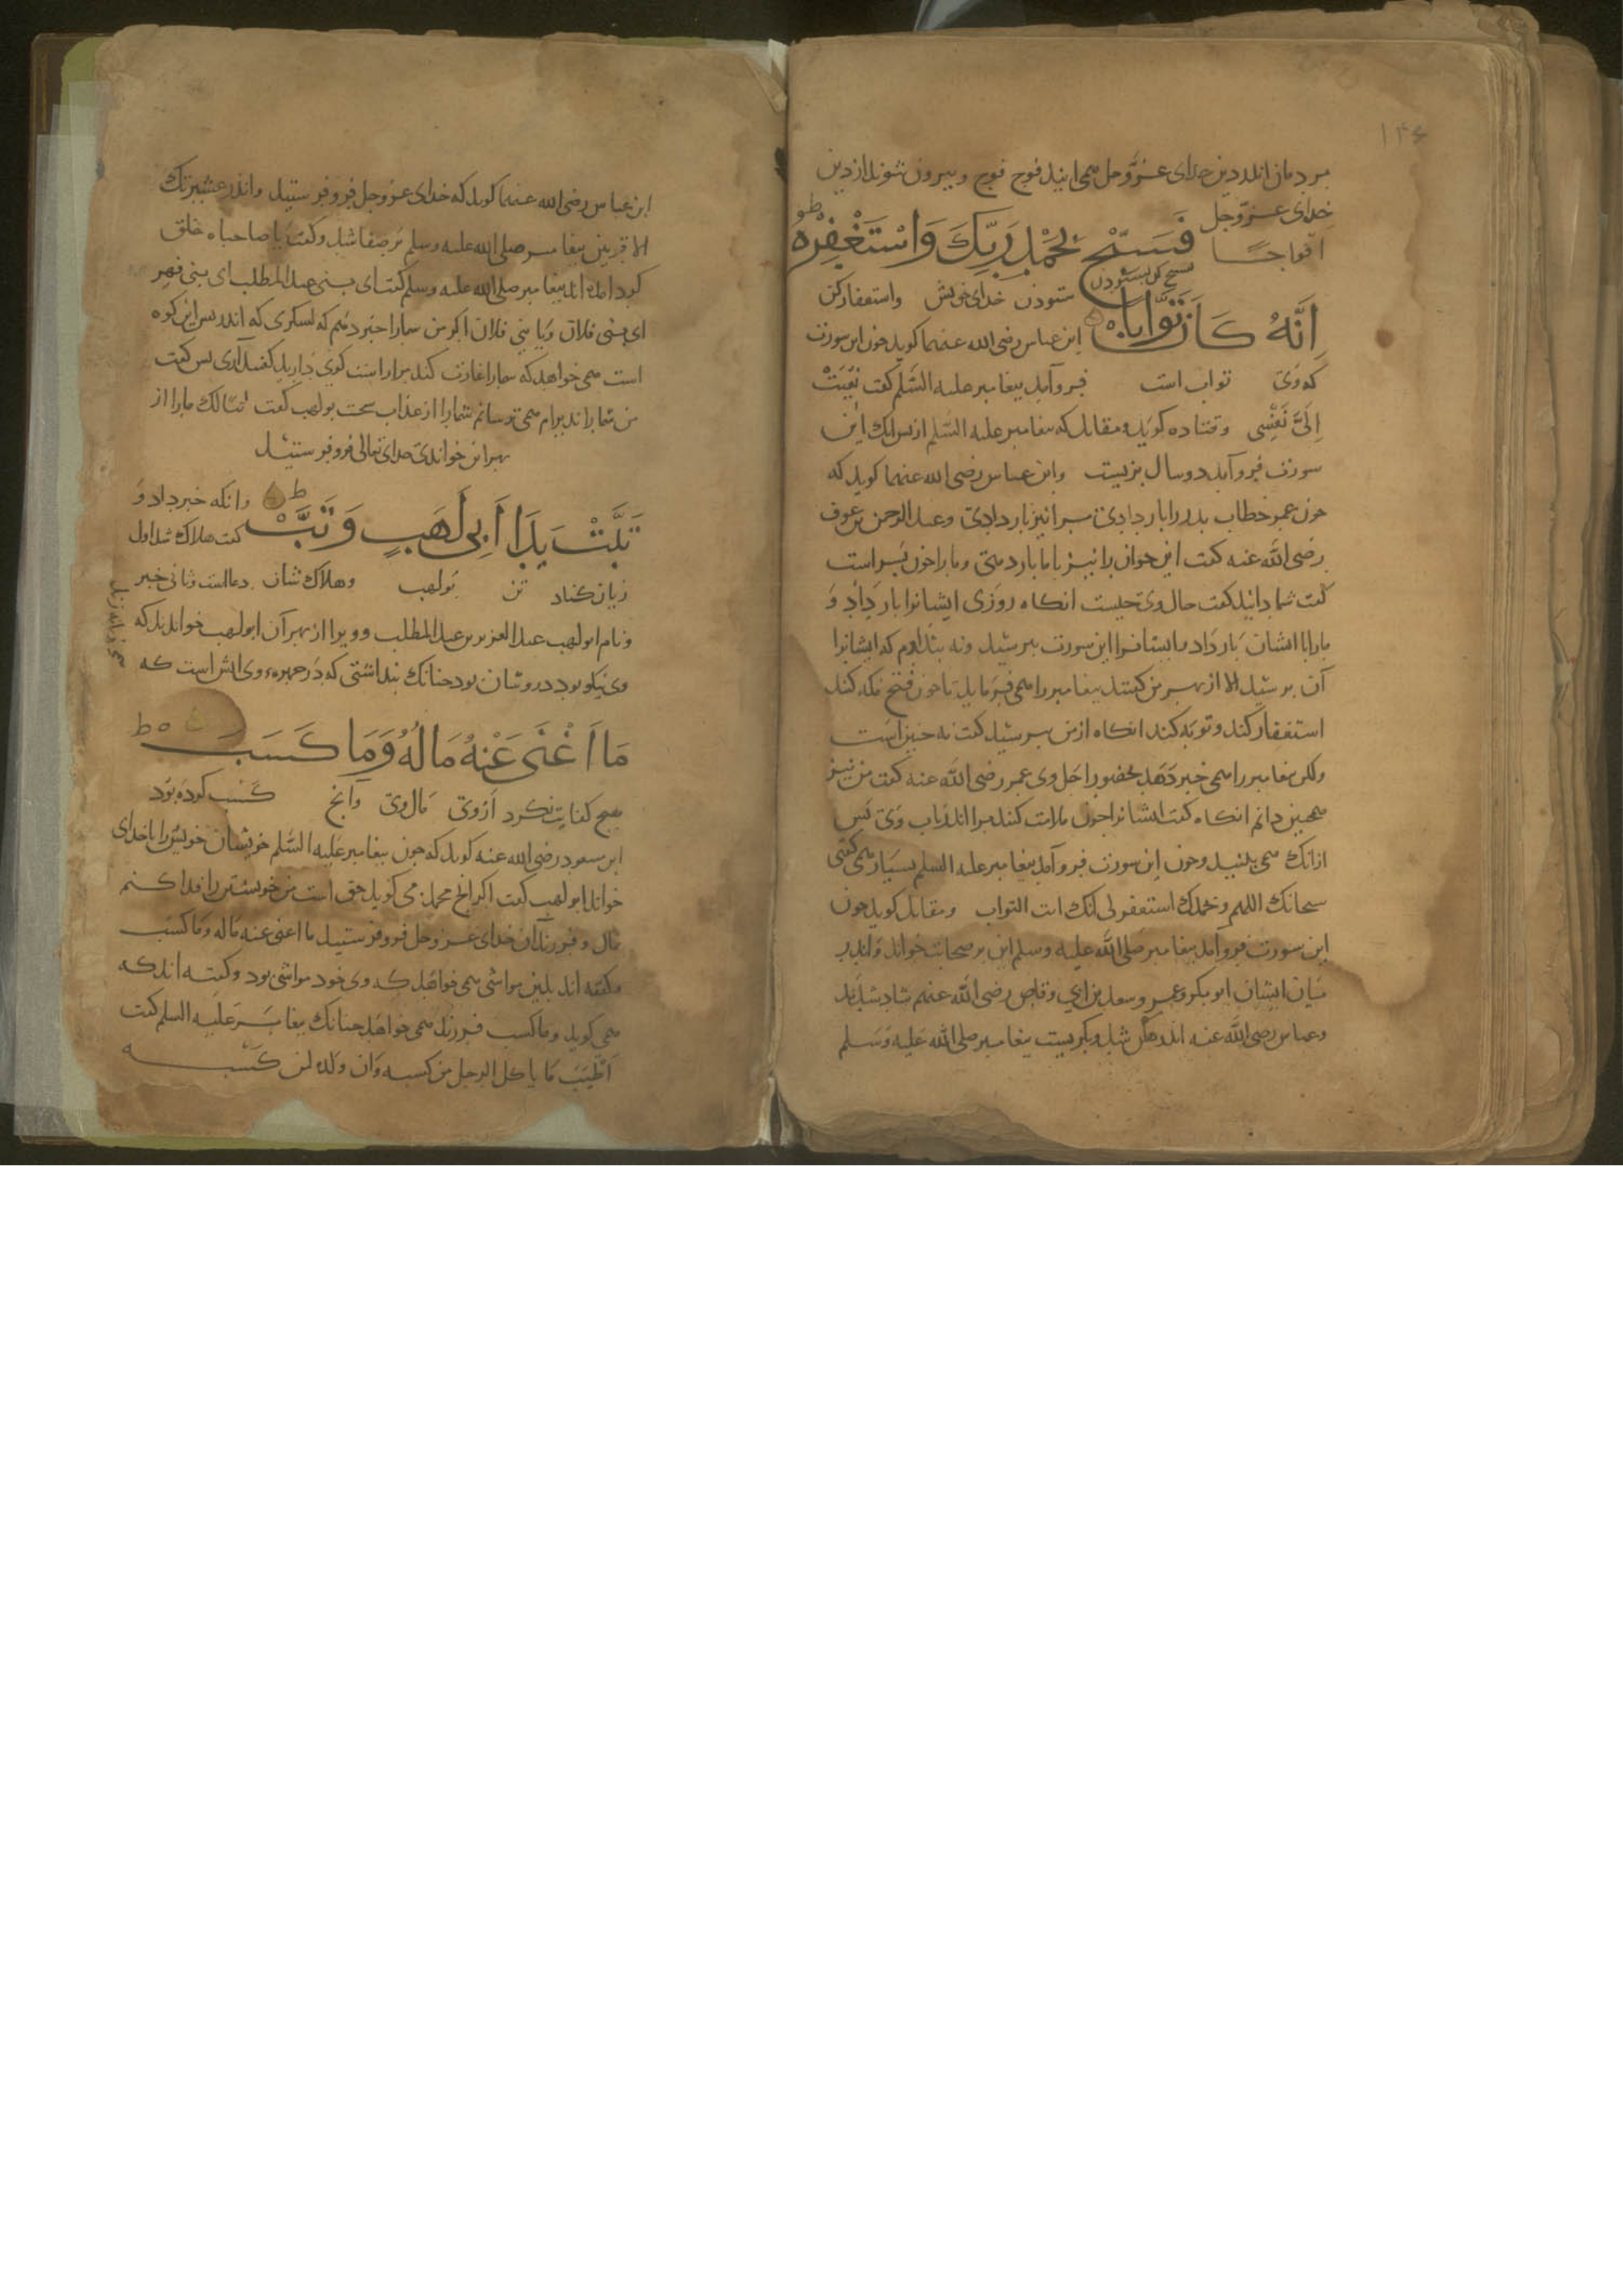 مردمان اندر دین خدای عزّوجل همی ایند فوج فوج و بیرون شوند از دین
خدای عزّوجل
افواجًا فَسَبِّحْ بِحَمْدِ رَبِّكَ وَاسْتَغْفِرْهُ ط
تسبیح كن بستودن ستودن خدای خویش واستغفار كن
اِنَّهُ كَانَ تَوَّابًا ابن عباس رضی الله عنهما كوید چون این سورت
كه وی تواب است فرو آمد بیغامبر علیه السّلم كفت نُعِیَتْ
اِلَیَّ نَفْسِی وقتاده كوید ومقاتل كه بیغامبر علیه السّلم از بس انك این
سورت فرو آمد دو سال بزیست وابن عباس رضی الله عنهما كوید كه
چون عمر خطاب بدر را بار دادی مرا نیز بار دادی وعبد الرحمن بن عوف
رضی الله عنه كفت این جوان را نیز با ما بار دهی وما را چون بسر است
كفت شما دانید كفت حال وی چیست انكاه روزی ایشانرا بار داد و
مارا با ایشان بار داد وایشانرا این سورت ببرسید ونه بندارم كه ایشانرا
آن برسید الا از بهر من كفتند بیغامبر را همی فرماید تا چون فتح مكه كند
استغفار كند وتوبه كند انكاه از من ببرسید كفت نه چنین است
ولكن بیغامبر را همی خبر دهد بحضور اجل وی عمر رضی الله عنه كفت من نیز
همچنین دانم انكاه كفت ایشانرا چون ملامت كنید مرا اندر باب وی بس
ازانك همی بینید وچون این سورت فرو آمد بیغامبر علیه السلم بسیار همی كفتی
سبحانك اللهم وبحمدك استغفر لی انك انت التواب ومقاتل كوید چون
این سورت فرو آمد بیغامبر صلی الله علیه وسلم این بر صحابت خواند واندر
میان ایشان ابو بكر وعمر وسعد بن ابی وقاص رضی الله عنهم شاد شدند
وعباس رضی الله عنه اندهكن شد وبكریست بیغامبر صلی الله علیه وسلم
ابن عباس رضی الله عنهما كوید كه خدای عزوجل فرو فرستید وانذر عشیرتك
الاقربین بیغامبر صلی الله علیه وسلم بر صفا شد وكفت یا صاحباه خلق
كرد آمدند بیغامبر صلی الله علیه وسلم كفت ای بنی عبد المطلب ای بنی فهر
ای بنی فلان ویا بنی فلان اكر من شمارا خبر دهم كه لشكری كه اندر بس این كوه
است همی خواهد كه شمارا غارت كند مرا راست كوی دارید كفتند آری بس كفت
من شما را نذیرام همی ترسانم شما را از عذاب سخت بولهب كفت تبّا لك مارا از
بهر این خواندی خدای تعالی فرو فرستید
تَبَّتْ یَدَا اَبِی لَهَبٍ وَتَبَّ ط وانكه خبر داد و
كفت هلاك شد اول
زیان كناد تن بولهب وهلاك شاد دعا است وثانی خبر
ونام ابو لهب عبد العزی بن عبد المطلب وویرا از بهر آن ابو لهب خواندند كه
وی نیكو بود وروشان بود چنانك بنداشتی كه در چهره وی اتش است كه
مَا اَغْنَی عَنْهُ مَالُهُ وَمَا كَسَبَ ط
هیچ كفایت نكرد ازوی مال وی وآنچ كسب كرده بود
ابن مسعود رضی الله عنه كوید كه چون بیغامبر علیه السّلم خویشان خویش را با خدای
خواند ابو لهب كفت اكر انچ محمد می كوید حق است من خویشتن را فدا كنم
بمال وفرزندان خدای عزوجل فرو فرستید ما اغنی عنه ماله وما كسب
وكفته اند بدین مواشی همی خواهد كه وی خود مواشی بود وكفته اند كه
همی كوید وما كسب فرزند همی خواهد چنانك بیغامبر علیه السلم كفت
اَطْیَبُ مَا یاكل الرجل من كسبه وَان ولده لمن كسبه